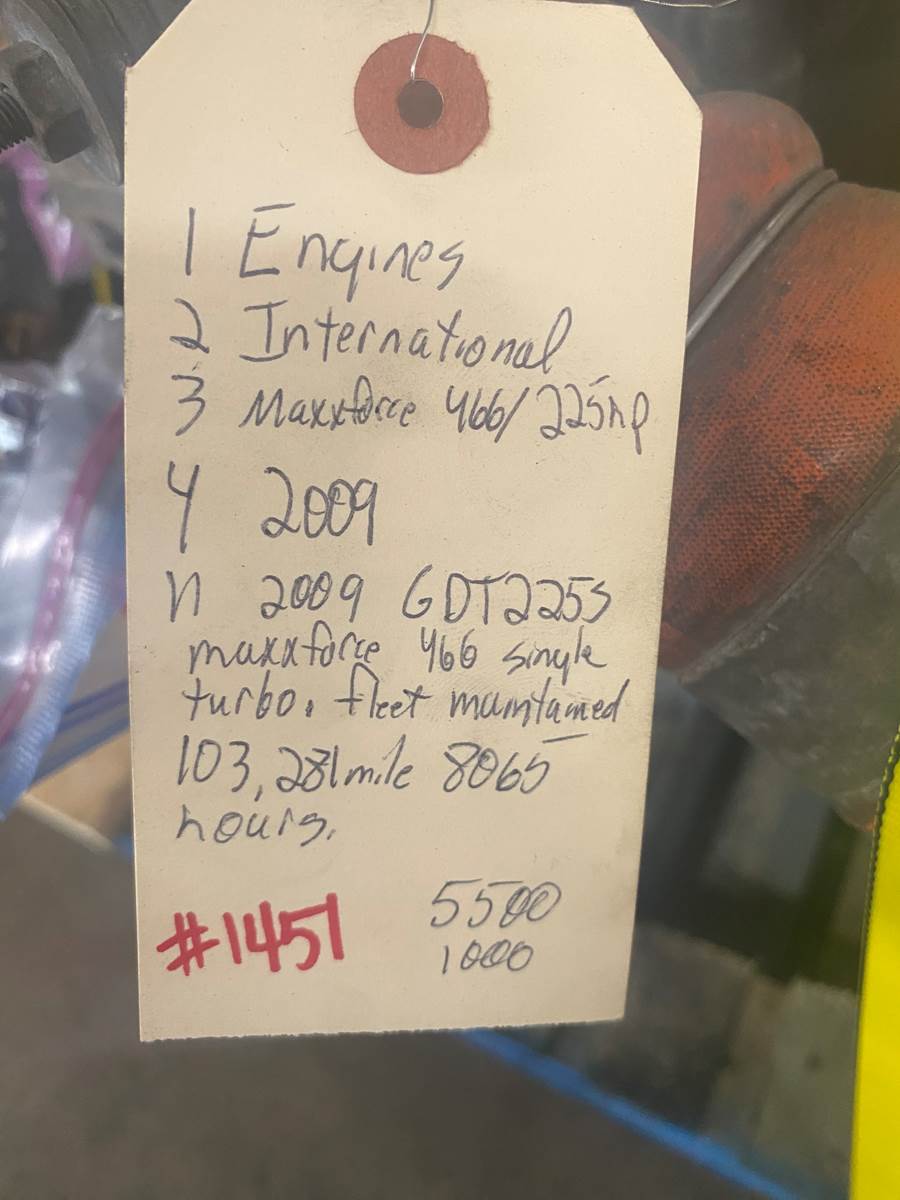 1 Engines
2 International
3 Maxxforce 466/225hp
4 2009
n 2009 GDT225s
maxxforce 466 single
turbo. fleet maintained
103,281 mile 8065
hours.
#1451 5500
1000